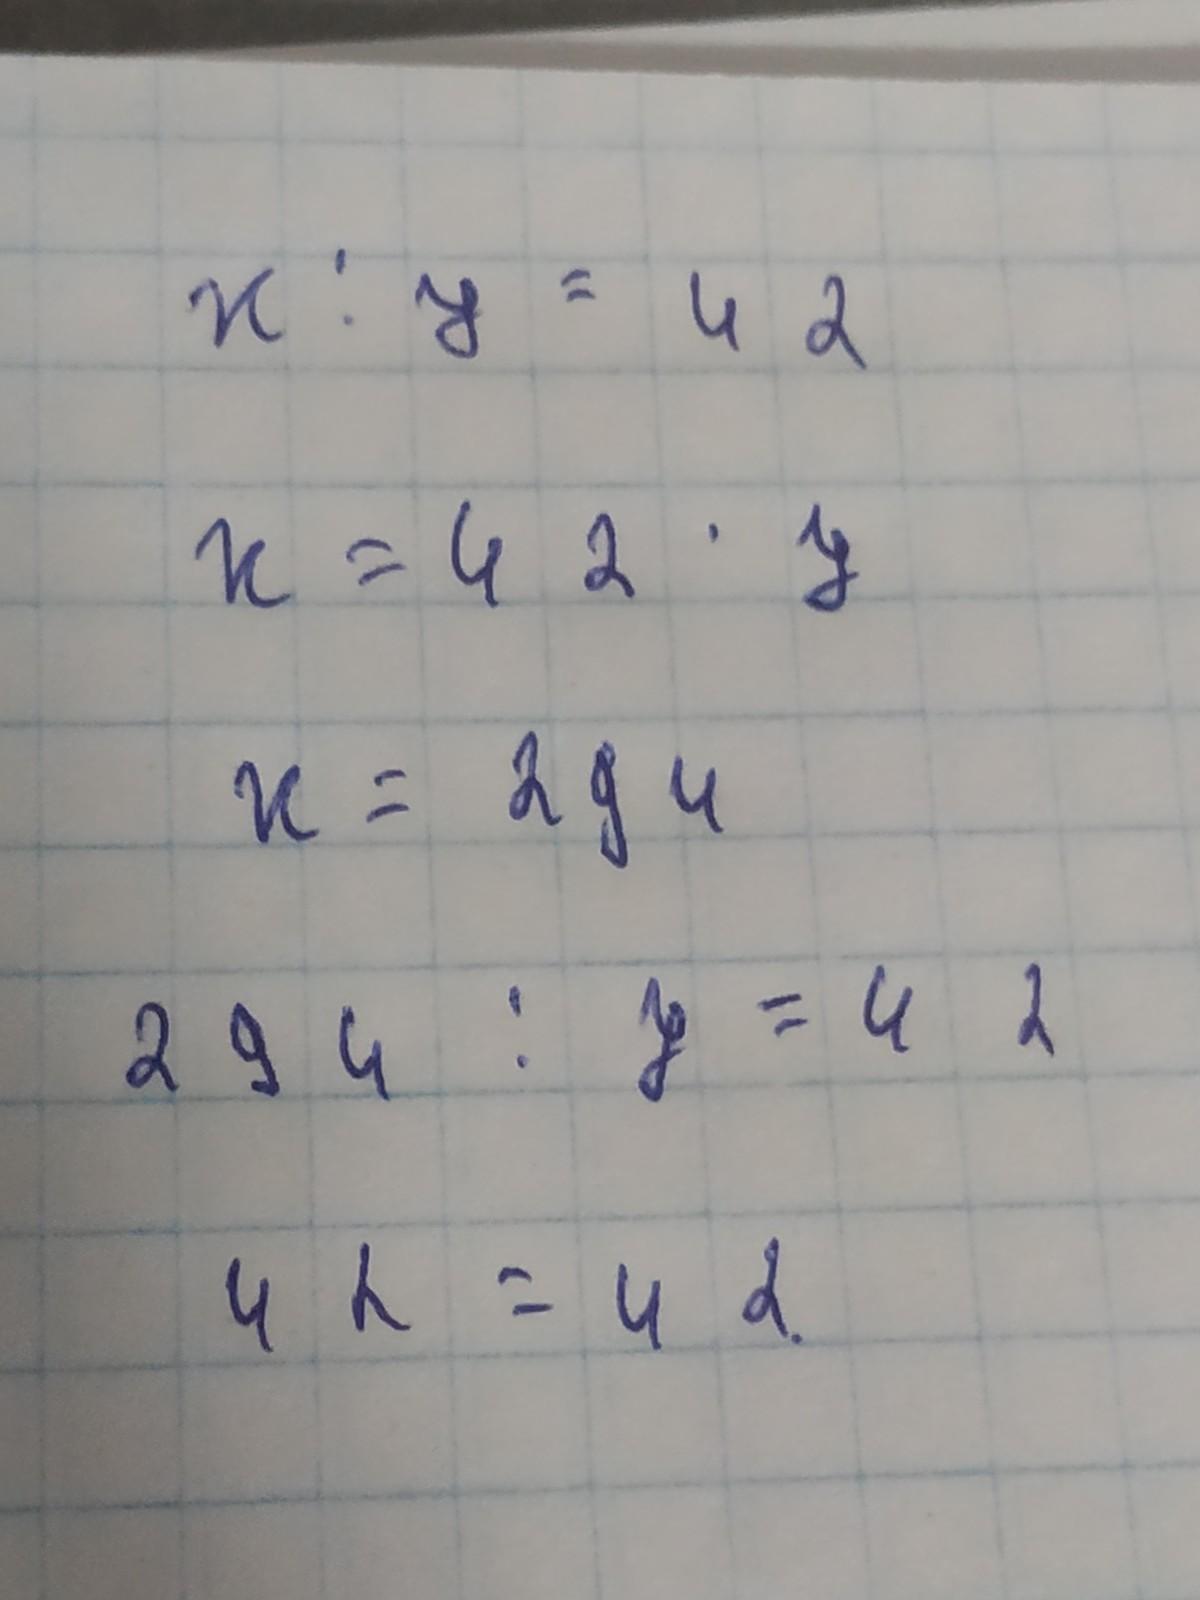 x : 7 = 42
x = 42 · 7
x = 294
294 : 7 = 42
42 = 42.